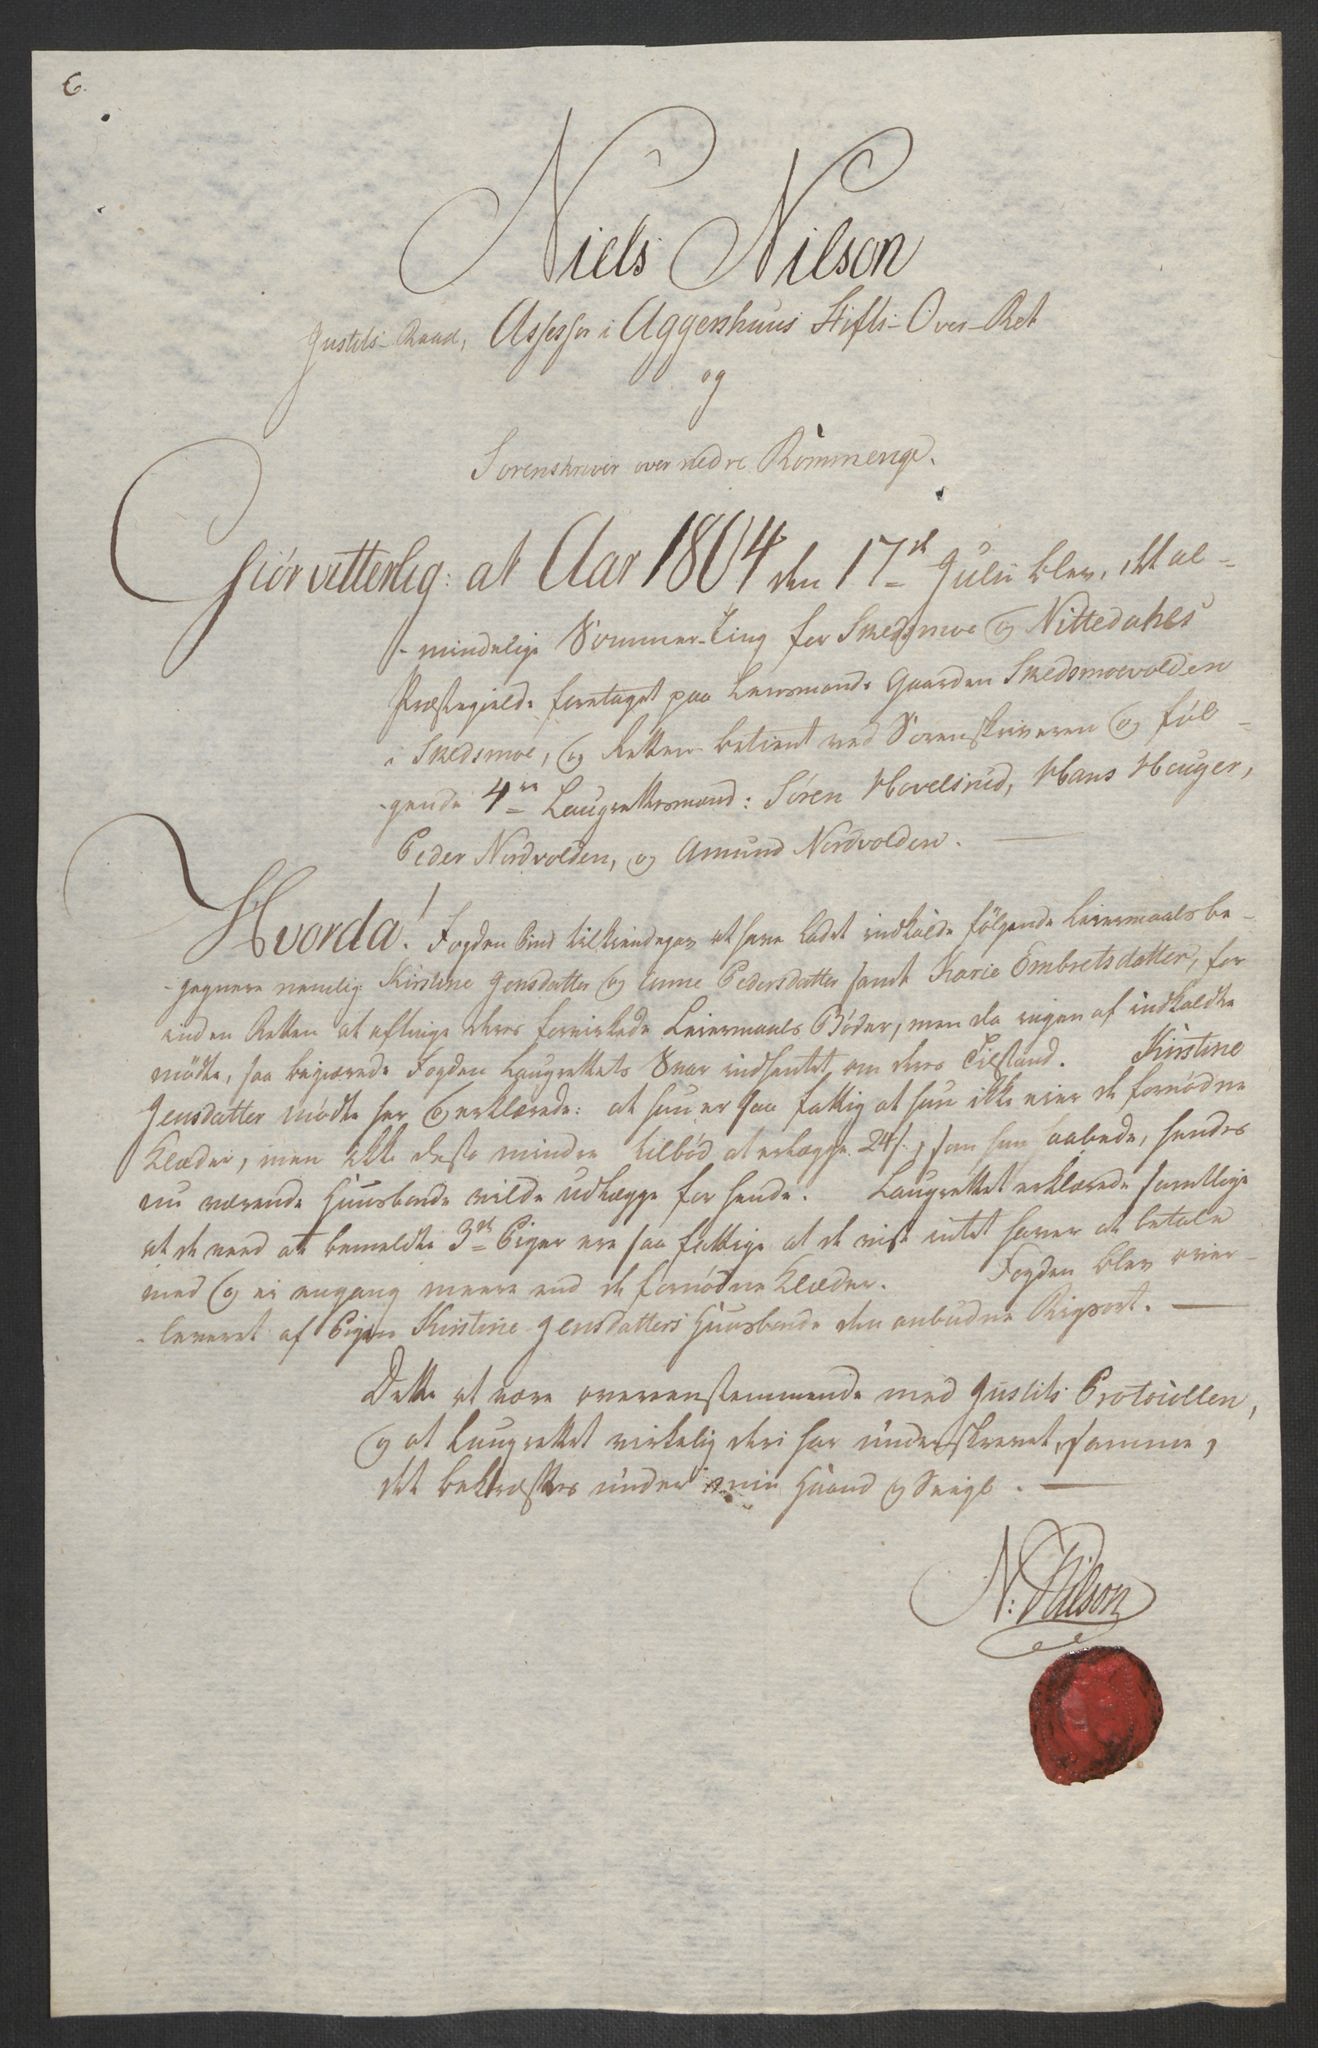 6.
Niels Nilson
Justits-Raad, Assessor i Aggershuus Stifts-Over-Ret
og
Sorenskriver over nedre Rommerige.
Giör vitterlig: at Aar 1804 den 17de Julii blev det al-
-mindelige Sommer-Ting for Skedsmoe og Nittedahls
Præstegield foretaget paa Lensmands Gaarden Skedsmoevolden
i Skedsmoe, og Retten betient ved Sorenskriveren og föl-
-gende 4re Laugrettesmænd: Sören Hovelsrud, Hans Hauger,
Peder Nordvolden, og Amund Nordvolden.
Hvorda! Fogden Bind tilkiendegav at have ladet indkalde fölgende Leiermaalsbe-
-gagnere nemlig Kirstine Jensdatter og Anne Pedersdatter samt Karie Embretsdatter, for
inden Retten at aftinge deres forvirkede Leiermaals Böder, men da ingen af indkaldte
mödte, saa begiærede Fogden Laugrettets Svar indhentet om deres Tilstand. Kirstine
Jensdatter mödte her og erklærede: at hun er saa fattig at hun ikke eier de fornödne
Klæder, men ikke desto mindre tilböd at erlægge 24 s., som hun haabede, hendes
nu værende Huusbonde vilde udlægge for hende. Laugrettet erklærede samtlige
at de veed at bemeldte 3de Piger ere saa fattige at de vist intet haver at betale
med og ei engang meere end de fornödne Klæder. Fogden blev over-
-leveret af Pigen Kirstine Jensdatters Huusbonde den anbudne Rigsort.
Dette at være overeenstemmende med Justits Protocollen,
og at Laugrettet virkelig deri har underskrevet samme,
det bekræftes under min Haand og Seigl.
N: Nilson